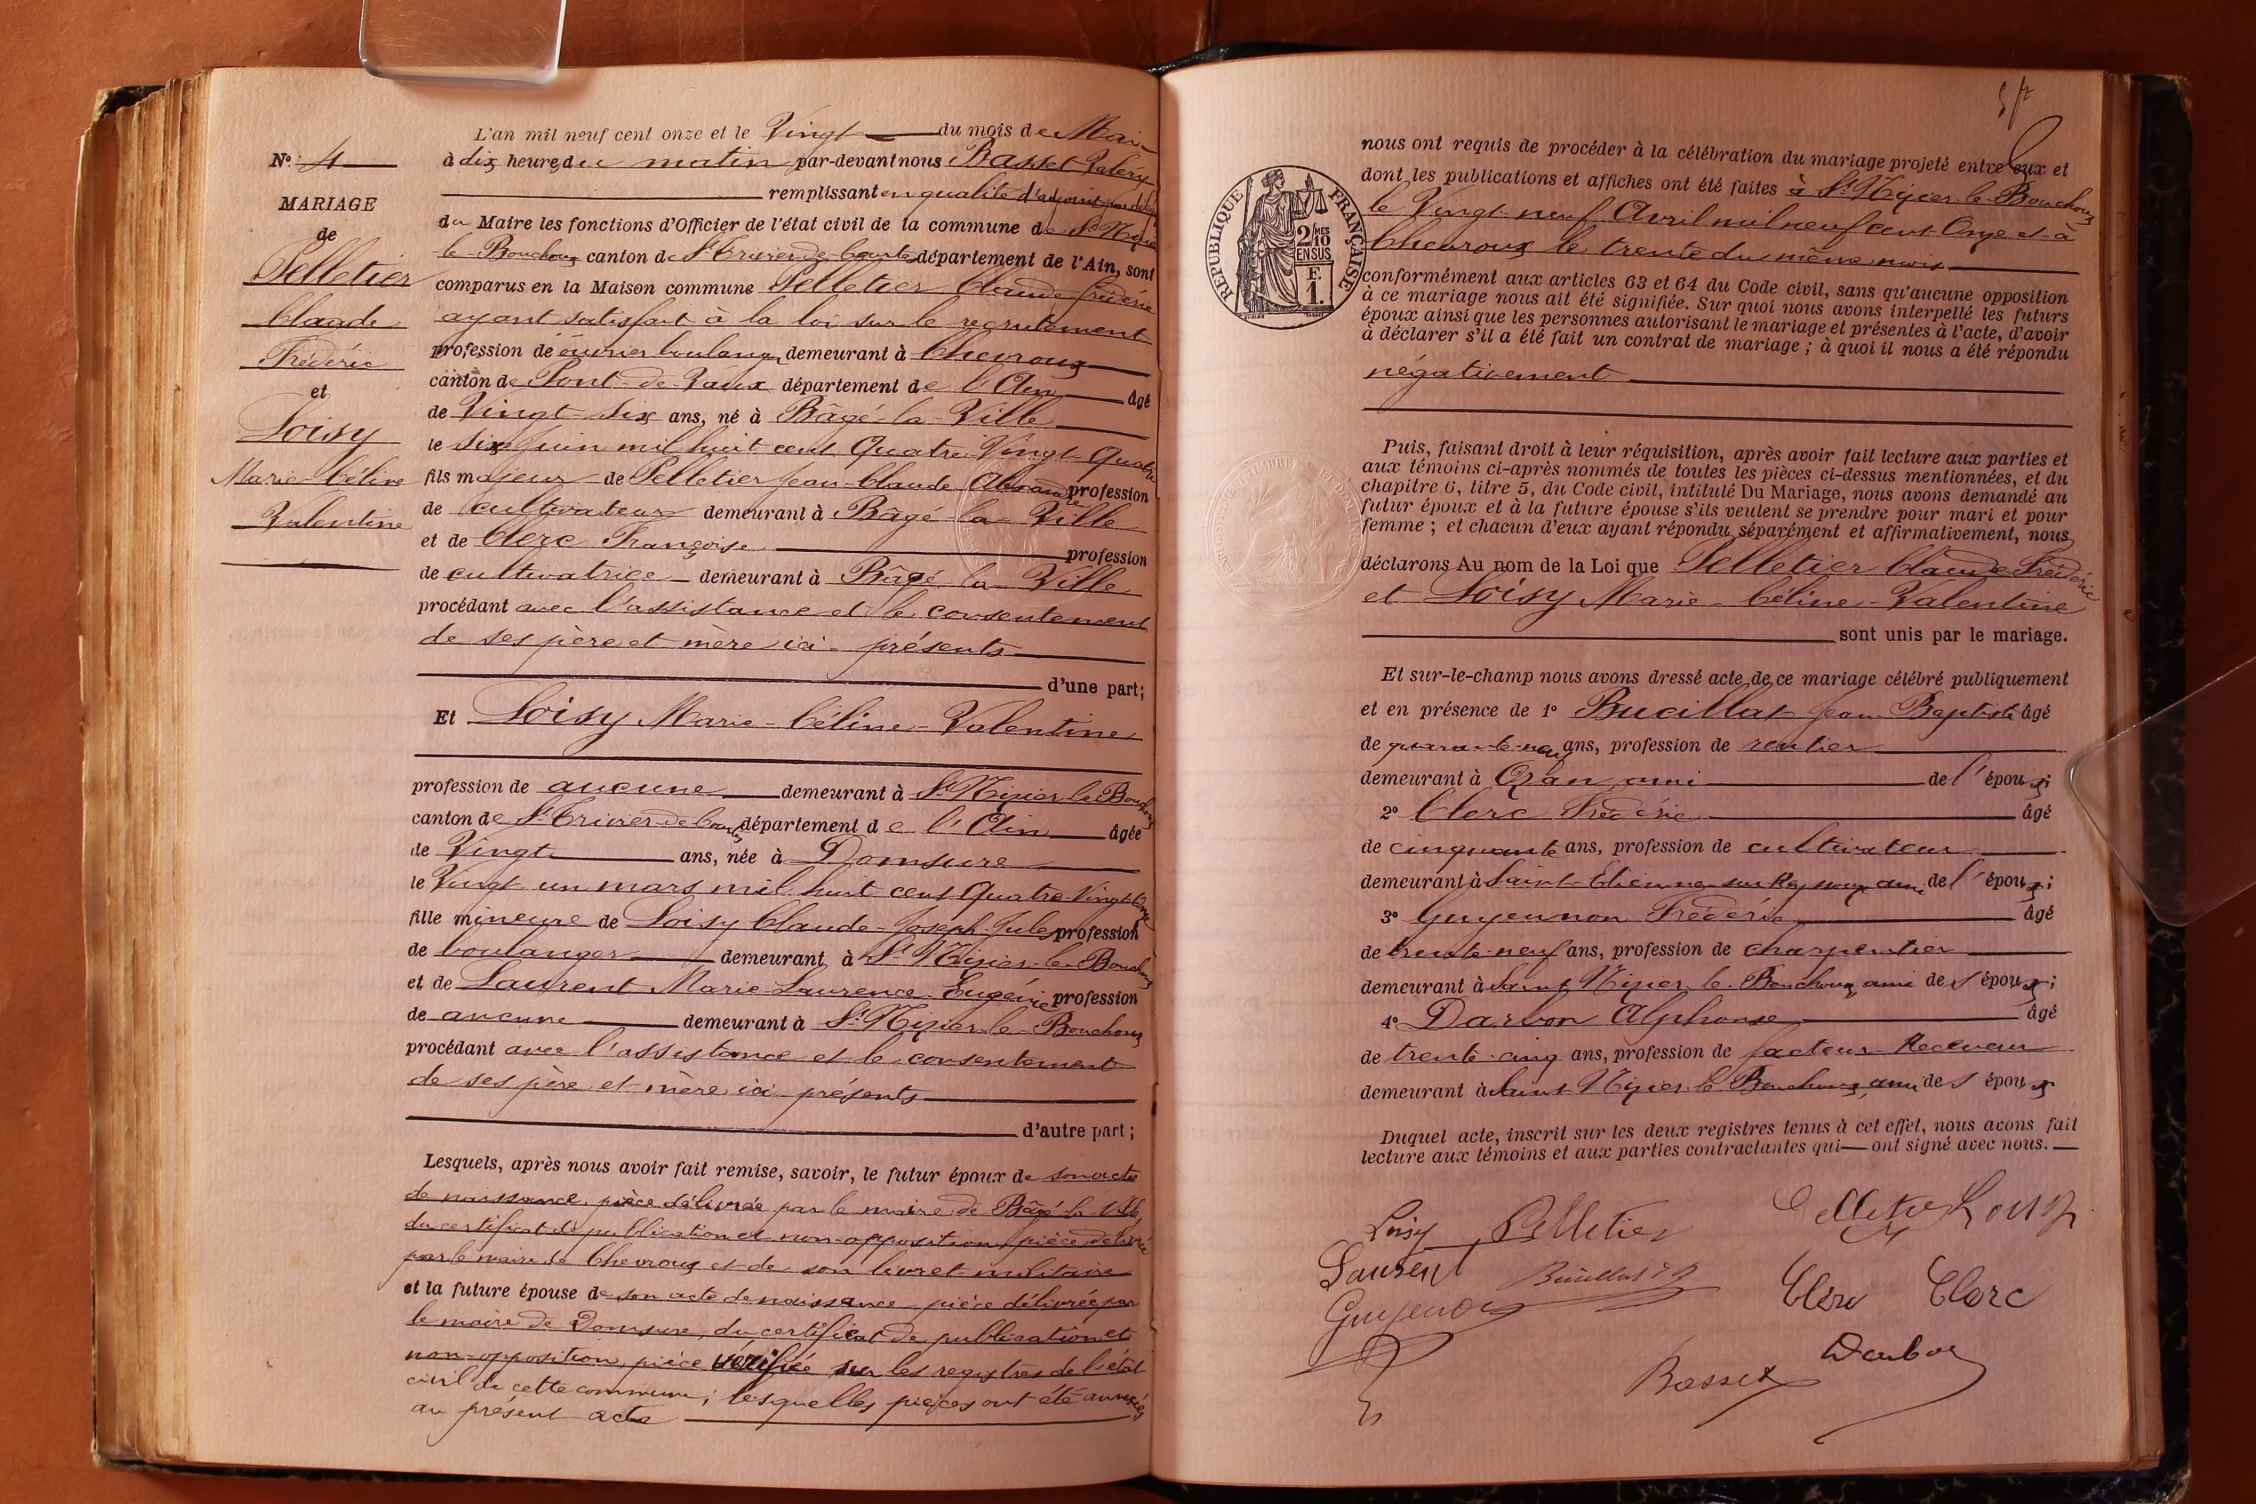 N° 4
MARIAGE
de
Pelletier
Claude
Frédéric
et
Loisy
Marie-Céline
Valentine
L'an mil neuf cent onze et le Vingt du mois de Mai
à dix heures du matin par-devant nous Basset Valéry
remplissant en qualité d'adjoint par
du Maire les fonctions d'Officier de l'état civil de la commune de St Nizier
le-Bouchoux canton de St Trivier-de-Courtes département de l'Ain, sont
comparus en la Maison commune Pelletier Claude Frédéric
ayant satisfait à la loi sur le recrutement
profession de ouvrier boulanger demeurant à Chevroux
canton de Pont-de-Vaux département de l'Ain âgé
de Vingt-six ans, né à Bâgé-la-Ville
le six juin mil huit cent Quatre-Vingt-Quatre
fils majeur de Pelletier Jean-Claude profession
de cultivateur demeurant à Bâgé-la-Ville
et de Clerc Françoise profession
de cultivatrice demeurant à Bâgé-la-Ville
procédant avec l'assistance et le consentement
de ses père et mère ici présents
d'une part;
Et Loisy Marie-Céline-Valentine
profession de aucune demeurant à St Nizier-le-Bouchoux
canton de St Trivier-de-Courtes département de l'Ain âgée
de Vingt ans, née à Domsure
le Vingt un mars mil huit cent Quatre-Vingt-Onze
fille mineure de Loisy Claude-Joseph-Jules profession
de boulanger demeurant à St Nizier-le-Bouchoux
et de Laurent Marie-Laurence-Eugénie profession
de aucune demeurant à St Nizier-le-Bouchoux
procédant avec l'assistance et le consentement
de ses père et mère ici présents
d'autre part;
Lesquels, après nous avoir fait remise, savoir, le futur époux de son acte
de naissance, pièce délivrée par le maire de Bâgé-la-Ville
du certificat de publication et non-opposition, pièce délivrée
par le maire de Chevroux et de son livret militaire
et la future épouse de son acte de naissance pièce délivrée par
le maire de Domsure, du certificat de publication et
non-opposition, pièce vérifiée sur les registres de l'état
civil de cette commune; lesquelles pièces ont été annexées
au présent acte
57
nous ont requis de procéder à la célébration du mariage projeté entre eux et
dont les publications et affiches ont été faites à St Nizier-le-Bouchoux
le Vingt-neuf Avril mil neuf cent Onze et à
Chevroux le trente du même mois
RÉPUBLIQUE FRANÇAISE
2/10 MES
EN SUS
F.
1.
conformément aux articles 63 et 64 du Code civil, sans qu'aucune opposition
à ce mariage nous ait été signifiée. Sur quoi nous avons interpellé les futurs
époux ainsi que les personnes autorisant le mariage et présentes à l'acte, d'avoir
à déclarer s'il a été fait un contrat de mariage; à quoi il nous a été répondu
négativement
Puis, faisant droit à leur réquisition, après avoir fait lecture aux parties et
aux témoins ci-après nommés de toutes les pièces ci-dessus mentionnées, et du
chapitre 6, titre 5, du Code civil, intitulé Du Mariage, nous avons demandé au
futur époux et à la future épouse s'ils veulent se prendre pour mari et pour
femme; et chacun d'eux ayant répondu séparément et affirmativement, nous
déclarons Au nom de la Loi que Pelletier Claude Frédéric
et Loisy Marie-Céline-Valentine
sont unis par le mariage.
Et sur-le-champ nous avons dressé acte de ce mariage célébré publiquement
et en présence de 1° Bucillat Jean Baptiste âgé
de quarante-neuf ans, profession de rentier
demeurant à Oran ami de l'époux;
2° Clerc Frédéric âgé
de cinquante ans, profession de cultivateur
demeurant à Saint-Etienne-sur-Reyssouze ami de l'époux;
3° Guyennon Frédéric âgé
de trente-neuf ans, profession de charpentier
demeurant à Saint Nizier-le-Bouchoux ami des époux;
4° Darbon Alphonse âgé
de trente-cinq ans, profession de facteur-Receveur
demeurant à Saint Nizier-le-Bouchoux, ami des époux
Duquel acte, inscrit sur les deux registres tenus à cet effet, nous avons fait
lecture aux témoins et aux parties contractantes qui ont signé avec nous.
Loisy Pelletier Pelletier Loisy
Laurent Bucillat JB Clerc Clerc
Guyenon
Basset Darbon